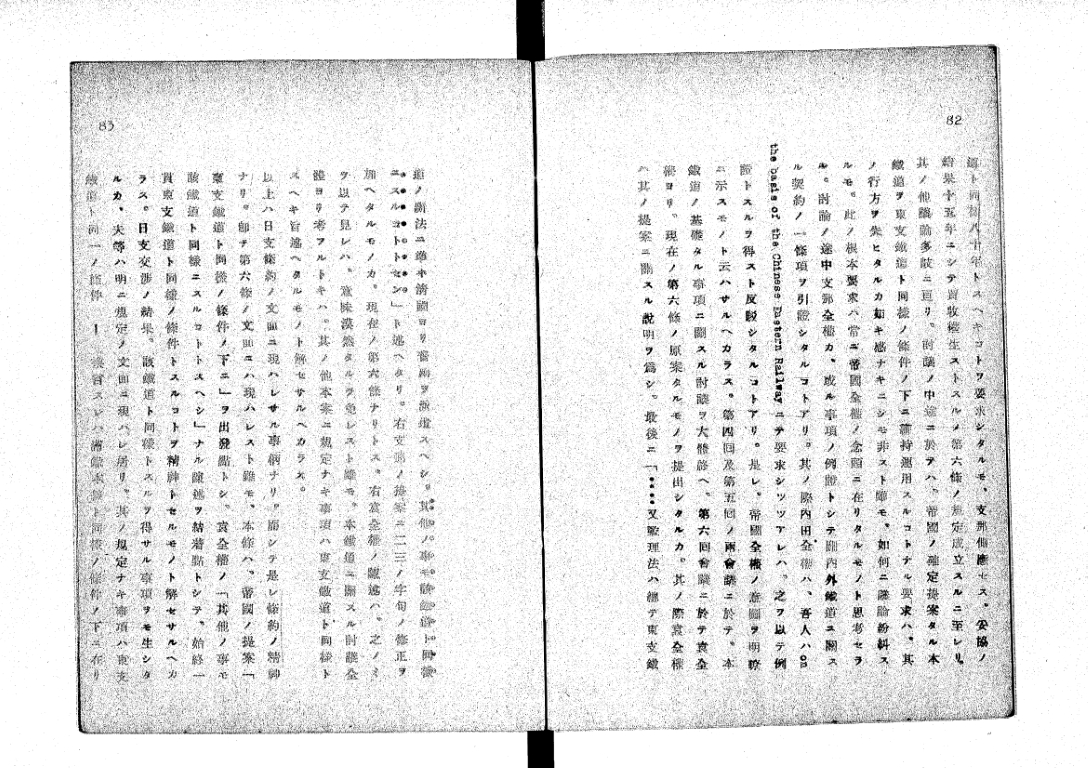 82
道ト同様八十年トスヘキコトヲ要求シタルモ、支那側應セス。妥協ノ
結果十五年ニシテ買收權生ストスル第六條ノ規定成立スルニ至レリ。
其ノ他議論多岐ニ亘リ。討議ノ中途ニ於テハ、帝國ノ確定提案タル本
鐵道ヲ東支鐵道ト同樣ノ條件ノ下ニ維持運用スルコトナル要求ハ、其
ノ行方ヲ失ヒタルカ如キ感ナキニシモ非スト雖モ、如何ニ議論紛糾ス
ルモ。此ノ根本要求ハ常ニ帝國全權ノ念頭ニ在リタルモノト思考セラ
ル。討論ノ途中支那全權カ、或ル事項ノ例證トシテ關內外鐵道ニ關ス
ル契約ノ一條項ヲ引證シタルコトアリ。其ノ際內田全權ハ、吾人ハ on
the basis of the Chinese Eastern Railway ニテ要求シツツアレハ、之ヲ以テ例
證トスルヲ得スト反駁シタルコトアリ。是レ、帝國全權ノ意圖ヲ明瞭
ニ示スモノト云ハサルヘカラス。第四回及第五回ノ兩會議ニ於テ、本
鐵道ノ基礎タル事項ニ關スル討議ヲ大體終ヘ、第六回會議ニ於テ袁全
權ヨリ、現在ノ第六條ノ原案タルモノヲ提出シタルカ。其ノ際袁全權
ハ其ノ提案ニ關スル說明ヲ爲シ。最後ニ「・・・・又監理法ハ總テ東支鐵
83
道ノ辦法ニ準ホ清國ヨリ督辦ヲ派遣スヘシ。其他ノ事モ該鐵道ト同樣
ニスルコトトセン」ト述ヘタリ。右支那ノ提案ニ二三ノ字句ノ修正ヲ
加ヘタルモノカ、現在ノ第六條ナリトス。右袁全權ノ陳述ハ、之ノミ
ヲ以テ見レハ、意味漠然タルヲ免レスト雖モ、本鐵道ニ關スル討議全
體ヨリ考フルトキハ、其ノ他本案ニ規定ナキ事項ハ東支鐵道ト同樣ト
スヘキ旨述ヘタルモノト解セサルヘカラス。
以上ハ日支條約ノ文面ニ現ハレサル事柄ナリ。而シテ是レ條約ノ精神
ナリ。卽チ第六條ノ文面ニハ現ハレスト雖モ、本條ハ、帝國ノ提案「
東支鐵道ト同樣ノ條件ノ下ニ」ヲ出發點トシ、袁全權ノ「其他ノ事モ
該鐵道ト同樣ニスルコトトスヘシ」ナル陳述ヲ結着點トシテ、始終一
貫東支鐵道ト同樣ノ條件トスルコトヲ精神トセルモノト解セサルヘカ
ラス。日支交涉ノ結果。該鐵道ト同樣トスルヲ得サル事項ヲモ生シタ
ルカ、夫等ハ明ニ規定ノ文面ニ現ハレ居リ、其ノ規定ナキ事項ハ東支
鐵道ト同一ノ條件 ー 換言スレハ南滿本線ト同樣ノ條件ノ下ニ在リ